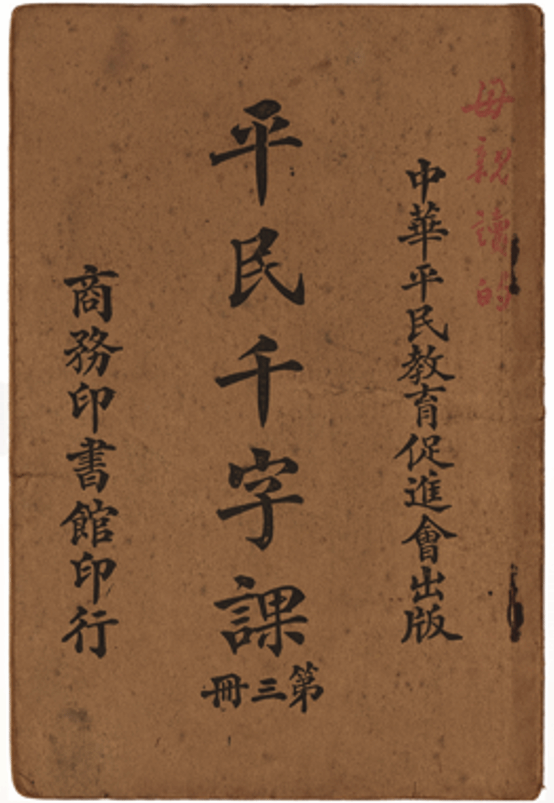 母親讀的
中華平民教育促進會出版
平民千字課
第三冊
商務印書館印行